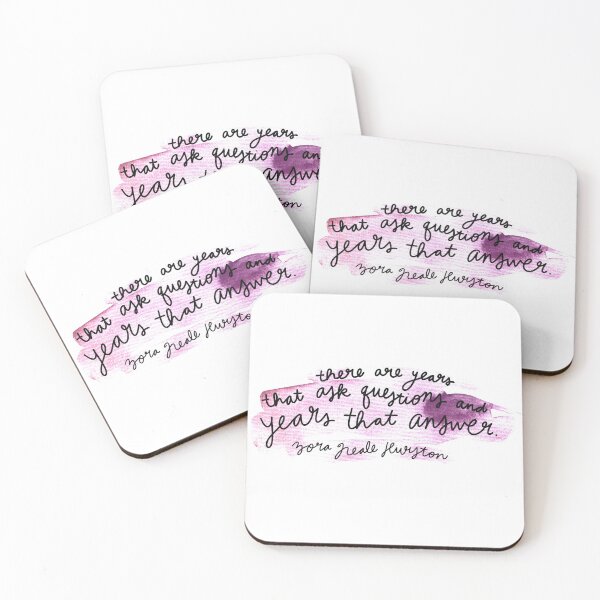 there are years
that ask questions
years
there are years
that ask questions and
years that answer.
Zora Neale Hurston
there are years
that ask questions and
years that answer.
Zora Neale
there are years
that ask questions and
years that answer.
Zora Neale Hurston